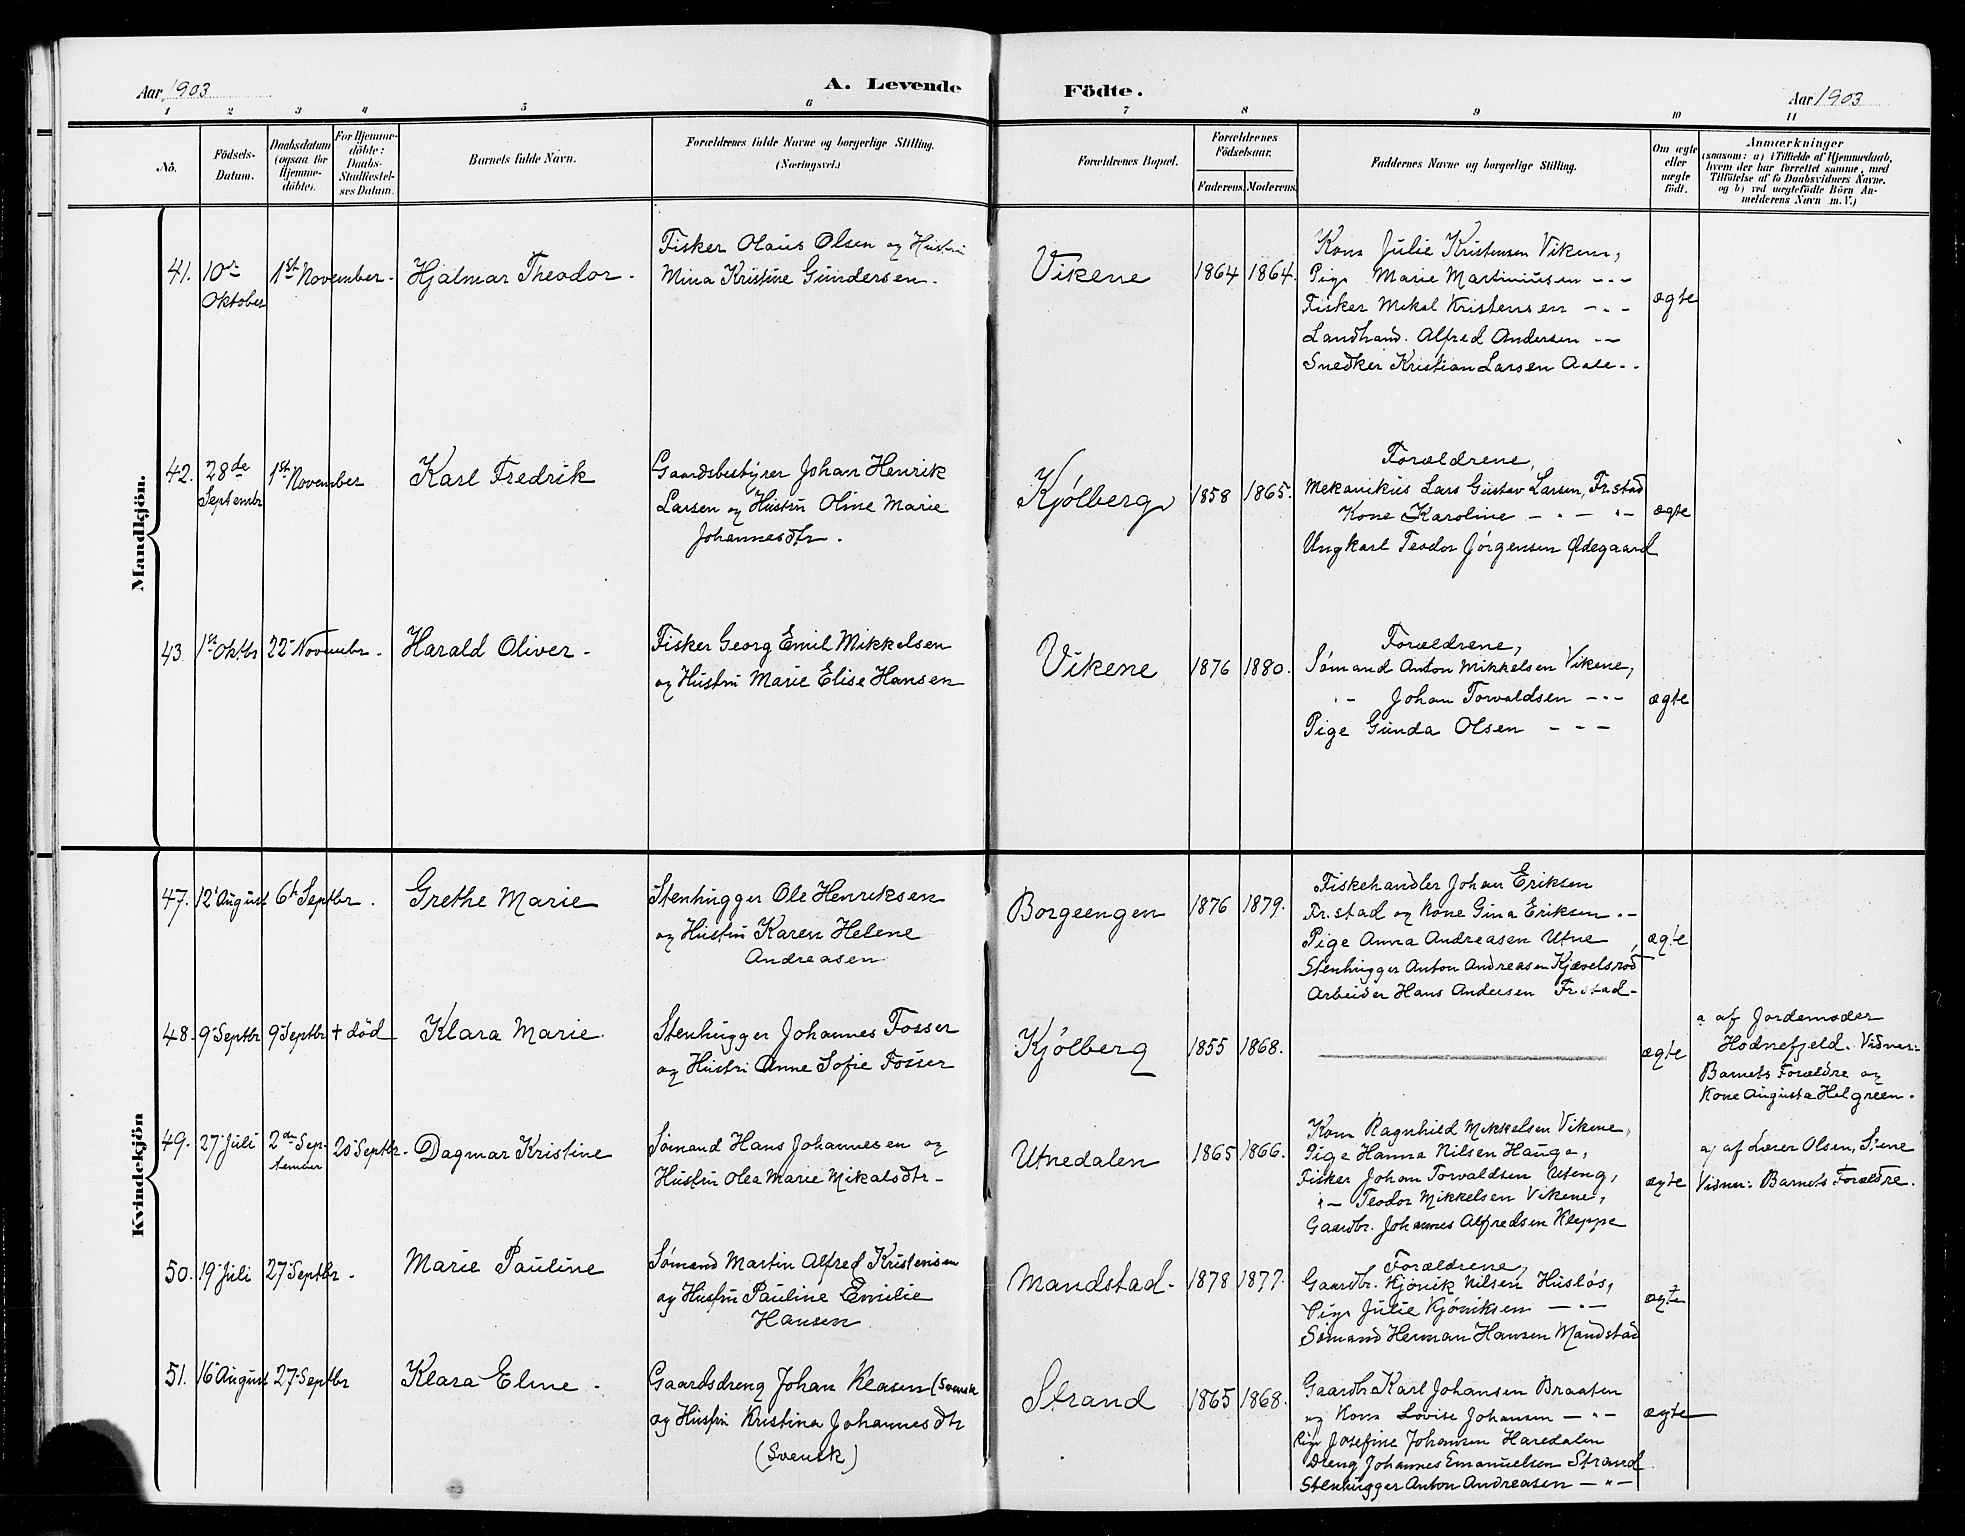 Aar 1903
A. Levende
Födte.
Aar 1903
1 2 3 4 5 6 7 8 9 10 11
No.
Födsels-
Datum.
Daabsdatum
(ogsaa for
Hjemme-
döbte).
For Hjemme-
döbte:
Daabs-
Stadfæstel-
ses Datum.
Barnets fulde Navn.
Forældrenes fulde Navne og borgerlige Stilling.
(Næringsvei.)
Forældrenes Bopæl.
Forældrenes
Födselsaar.
Faderens. Moderens.
Faddernes Navne og borgerlige Stilling.
Om ægte
eller
uægte
födt.
Anmærkninger
(saasom: a) i Tilfælde af Hjemmedaab,
hvem der har forrettet samme, med
Tilföielse af to Daabsvidners Navne,
og b) ved uægtefödte Börn An-
melderens Navn m. V.)
Mandkjön.
41.
10de
Oktober
1st November.
Hjalmar Theodor.
Fisker Olaus Olsen og Hustru
Mina Kristine Gundersen.
Vikene
1864 1864.
Kone Julie Kristensen Vikene,
Pige Marie Martiniusen - " -
Fisker Mikal Kristensen - " -
Landhand. Alfred Andersen - " -
Snedker Kristian Larsen Aale - .
ægte
42.
28de
Septembr
1st November
Karl Fredrik
Gaardsbestyrer Johan Henrik
Larsen og Hustru Oline Marie
Johannesdtr.
Kjølberg
1858 1865.
Forældrene,
Mekanikus Lars Gustav Larsen, Fr.stad
Kone Karoline - " - " -
Ungkarl Teodor Jørgensen Ødegaard
ægte
43
1st Oktbr
22 Novembr.
Harald Oliver.
Fisker Georg Emil Mikkelsen
og Hustru Marie Elise Hansen
Vikene
1876 1880.
Forældrene,
Sømand Anton Mikkelsen Vikene,
" - Johan Torvaldsen - " -
Pige Gunda Olsen - - -
ægte
Kvindekjön
47.
12' August
6te Septbr.
Grethe Marie
Stenhugger Ole Henriksen
og Hustru Karen Helene
Andreasen
Borgeengen
1876 1879.
Fiskehandler Johan Eriksen
Fr.stad og Kone Gina Eriksen. -
Pige Anna Andreasen Utne,
Stenhugger Anton Andreasen Kjævelsrød
Arbeider Hans Andersen Fr.stad -
ægte
48.
9' Septbr
9' Septbr
+ død
Klara Marie.
Stenhugger Johannes Fosser
og Hustru Anne Sofie Fosser
Kjølberg
1855 1868.
ægte
a af Jordemoder
Hodnefjeld. Vidner:
Barnets Forældre og
Kone Augusta Helgreen.
49.
27' Juli
2den Sep-
tember
20 Septbr.
Dagmar Kristine
Sømand Hans Johannesen og
Hustru Olea Marie Mikalsdtr -
Utnedalen
1865 1866.
Kone Ragnhild Mikkelsen Vikene,
Pige Hanna Nilsen Hauge,
Fisker Johan Torvaldsen Uteng,
" - Teodor Mikkelsen Vikene,
Gaardbr. Johannes Alfredsen Kleppe
ægte
a) af Lærer Olsen, Stene
Vidner: Barnets Forældre.
50.
19' Juli
27' Septbr.
Marie Pauline
Sømand Martin Alfred Kristensen
og Hustru Pauline Emilie
Hansen
Mandstad.
1878 1877.
Forældrene,
Gaardbr. Kjønik Nilsen Husløs,
Pige Julie Kjøniksen - " -
Sømand Herman Hansen Mandstad
ægte
51.
16' August
27' Septbr
Klara Eline.
Gaardsdreng Johan Klasen (Svensk
og Hustru Kristina Johannesdtr
(Svensk)
Strand
1865 1868.
Gaardbr Karl Johansen Braaten
og Kone Lovise Johansen - " -
Pige Josefine Johansen Haredalen
Dreng Johannes Emanuelsen Strand
Stenhugger Anton Andreasen - " -
ægte